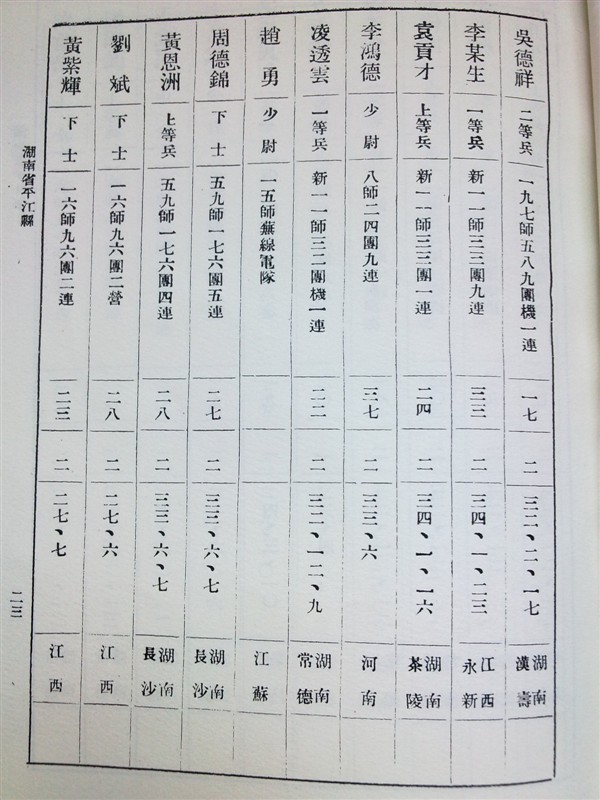 吳德祥 二等兵 一九七師五八九團機一連 一七 二 三二、二、一七 湖南漢壽
李某生 一等兵 新一一師三三團九連 三三 二 三四、一、二三 江西永新
袁貢才 上等兵 新一一師三三團一連 二四 二 三四、一、一六 湖南茶陵
李鴻德 少尉 八師二四團九連 三七 二 三三、六 河南
凌透雲 一等兵 新一一師三二團機一連 二二 二 三二、一二、九 湖南常德
趙勇 少尉 一五師無線電隊 江蘇
周德錦 下士 五九師一七六團五連 二七 二 三三、六、七 湖南長沙
黃恩洲 上等兵 五九師一七六團四連 二八 二 三三、六、七 湖南長沙
劉斌 下士 一六師九六團二營 二八 二 二七、六 江西
黃紫輝 下士 一六師九六團二連 二三 二 二七、七 江西
湖南省平江縣
二三